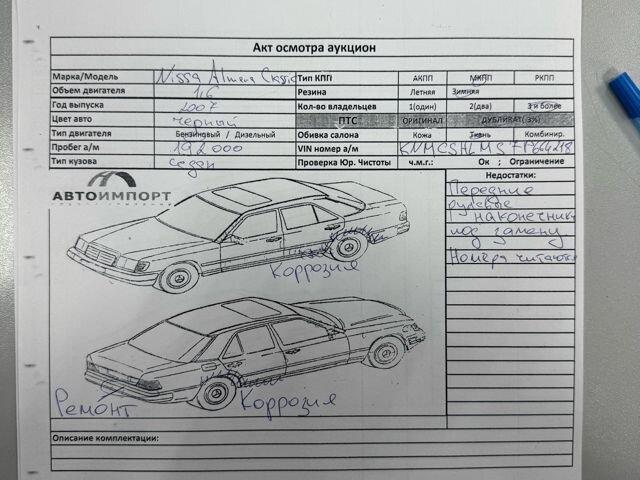 Акт осмотра аукцион
Марка/Модель Nissa Almera Classic Тип КПП АКПП МКПП РКПП
Объем двигателя 1.6 Резина Летняя Зимняя
Год выпуска 2007 Кол-во владельцев 1(один) 2(два) 3 и более
Цвет авто черный ПТС ОРИГИНАЛ ДУБЛИКАТ(-3%)
Тип двигателя Бензиновый / Дизельный Обивка салона Кожа Ткань Комбинир.
Пробег а/м 192000 VIN номер а/м
Тип кузова седан Проверка Юр. Чистоты ч.м.г.: Ок ; Ограничение
АВТОИМПОРТ
Недостатки:
Передние
рулевые
наконечники
под замену.
Номера читаются
Коррозия
Ремонт
Коррозия
Описание комплектации: